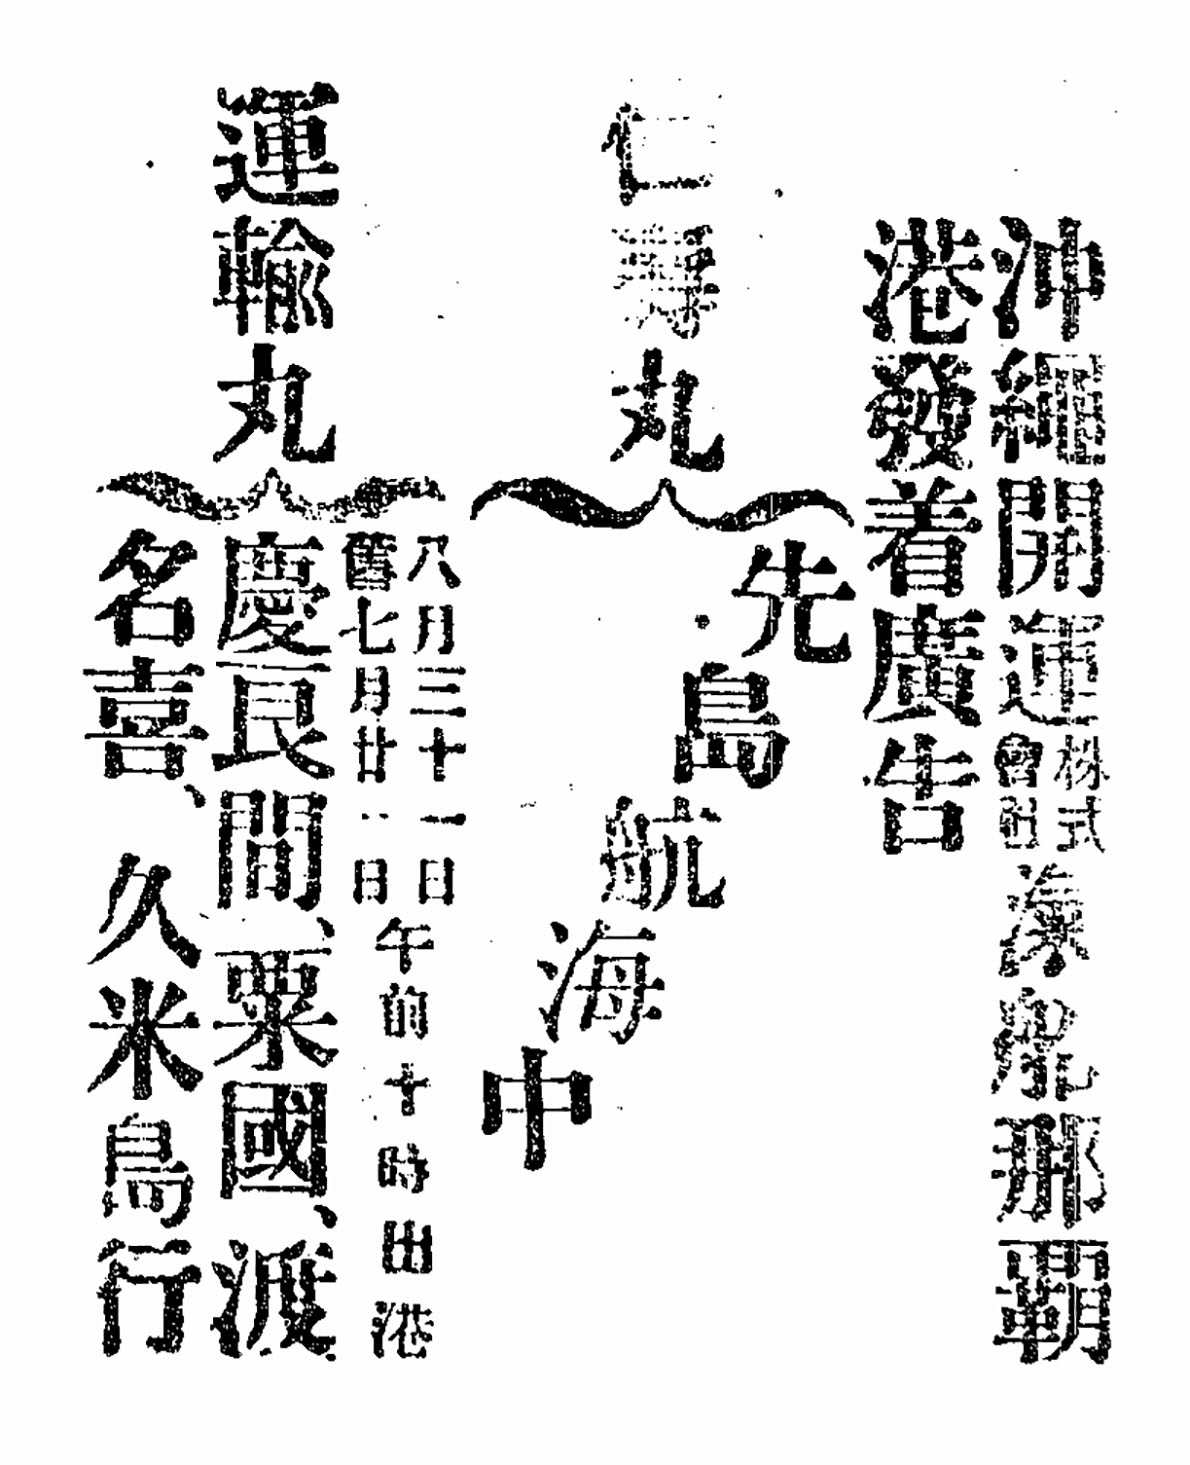 沖繩開運株式會社滊船那覇
港發着廣告
仁壽丸
先島航海中
運輸丸
八月三十一日
舊七月廿一日
午前十時出港
慶良間、粟國、渡
名喜、久米島行